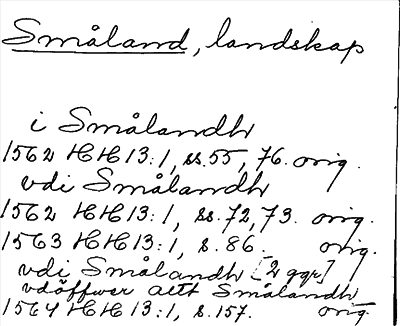 Småland, landskap
i Smålandh
1562 HH 13:1, ss. 55, 76. orig.
vdi Smålandh
1562 HH 13:1, ss. 72, 73. orig.
1563 HH 13:1, s. 86. orig.
vdi Smålandh [2 ggr]
vdöffwer altt Smålandh
1564 HH 13:1, s. 157. orig.